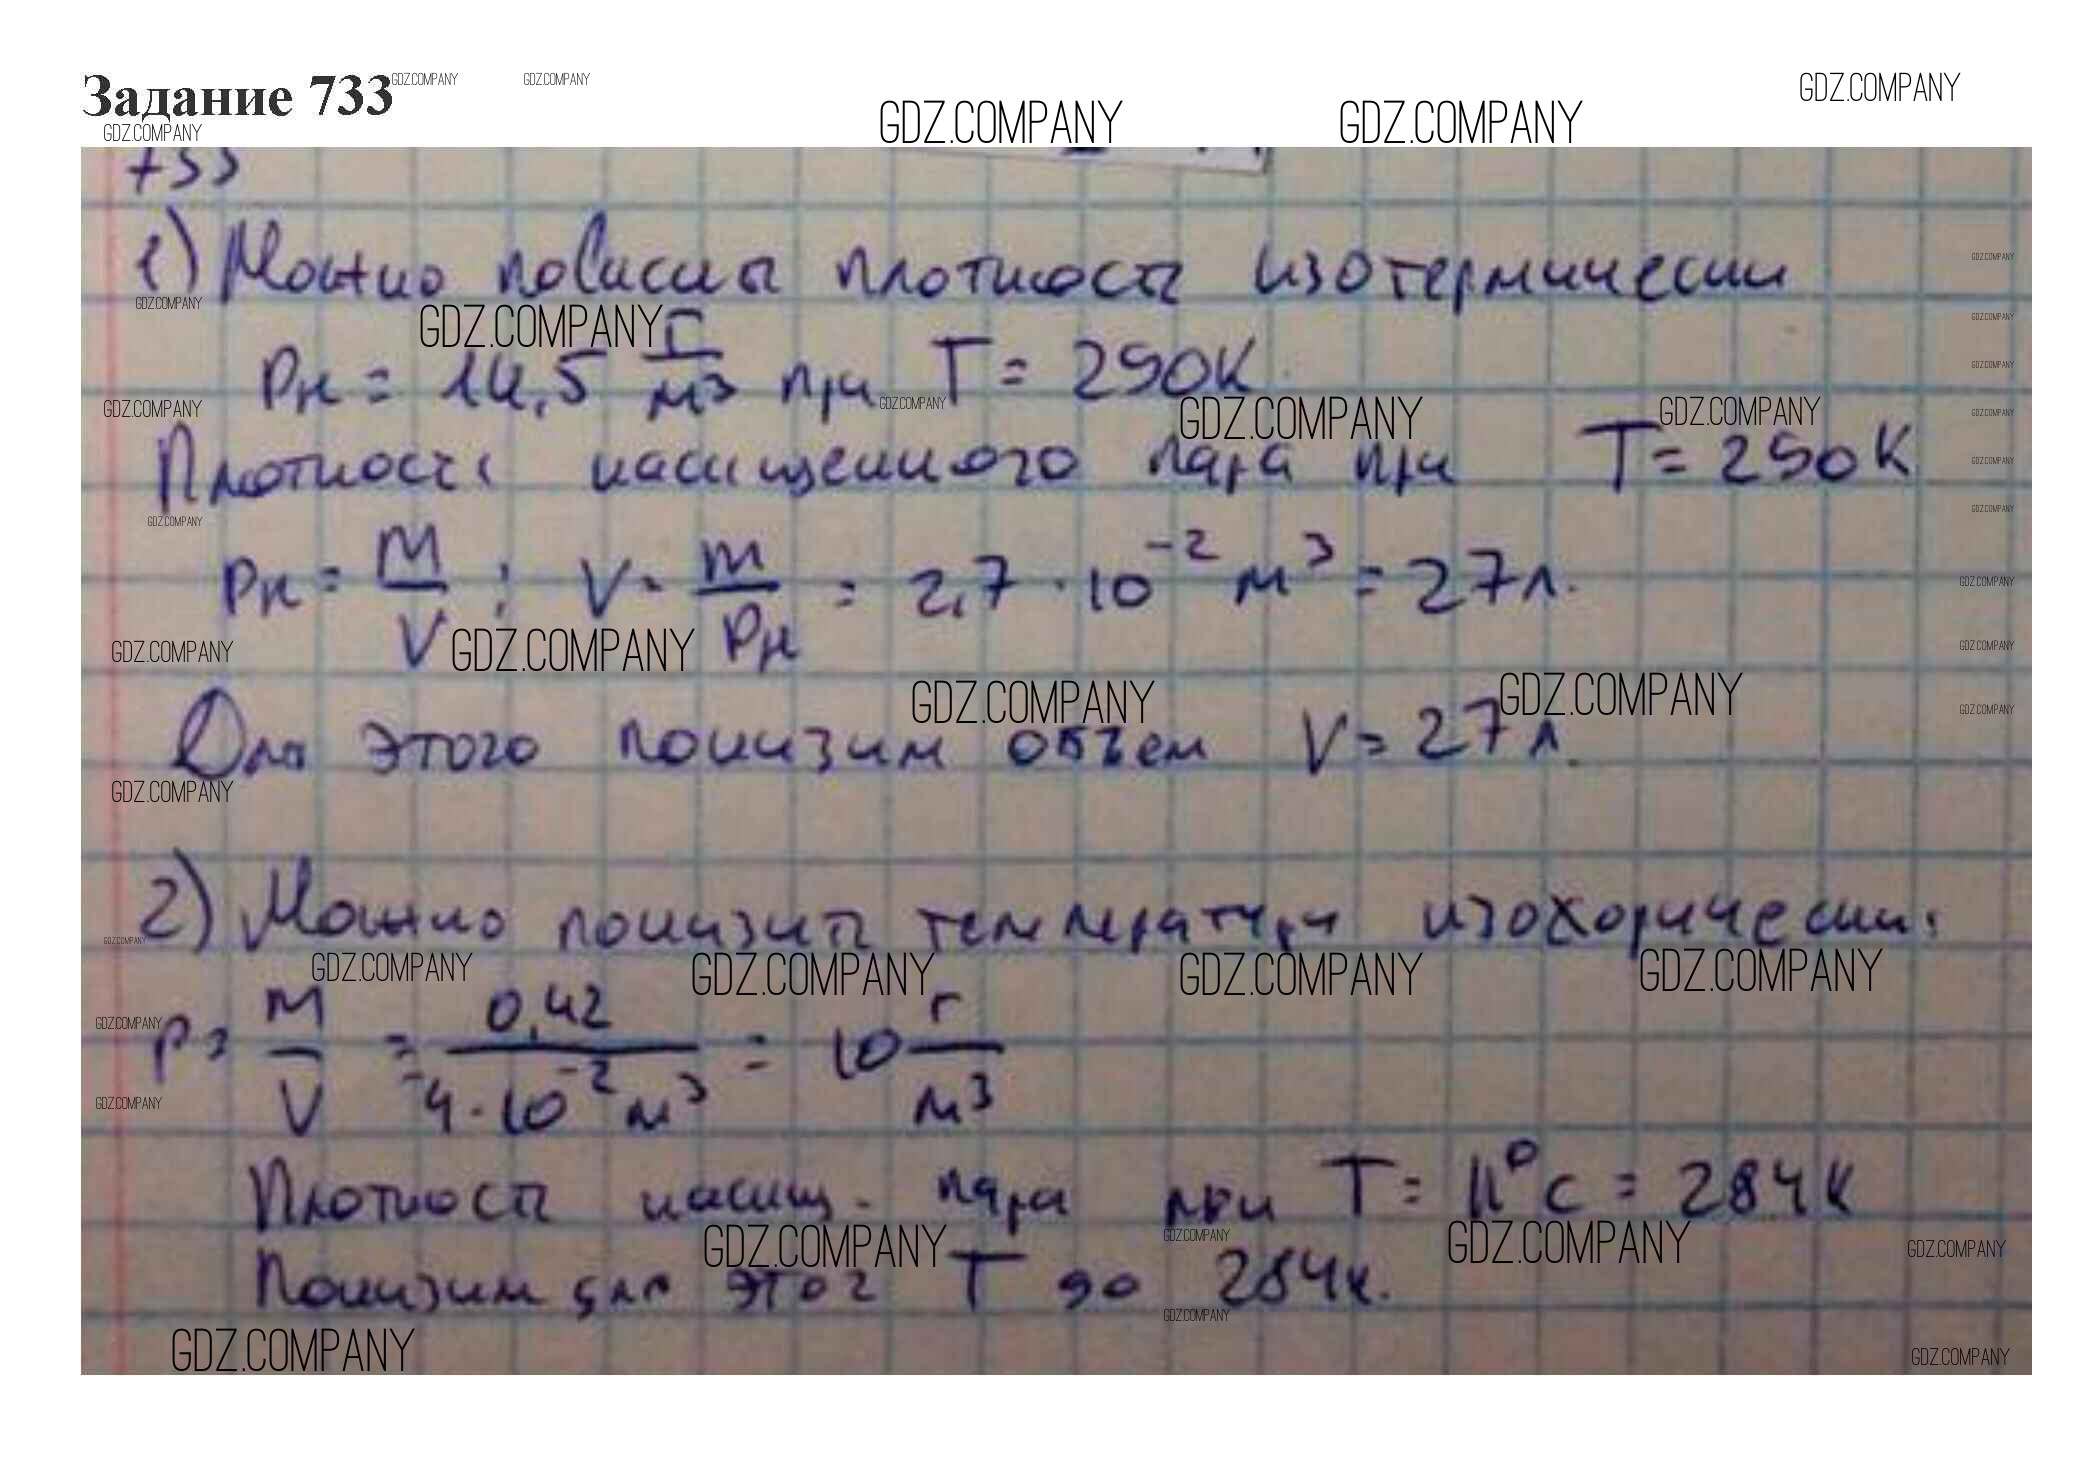 Задание 733
GDZ.COMPANY GDZ.COMPANY GDZ.COMPANY GDZ.COMPANY GDZ.COMPANY
GDZ.COMPANY
733
1) Можно повысить плотность изотермически
GDZ.COMPANY GDZ.COMPANY GDZ.COMPANY
GDZ.COMPANY
ρн = 14,5 г/м³ при T = 290К
GDZ.COMPANY
GDZ.COMPANY GDZ.COMPANY GDZ.COMPANY GDZ.COMPANY GDZ.COMPANY
Плотность насыщенного пара при T = 290К
GDZ.COMPANY
GDZ.COMPANY GDZ.COMPANY
ρн = m/V ; V = m/ρн = 2,7 · 10⁻² м³ = 27 л.
GDZ.COMPANY
GDZ.COMPANY GDZ.COMPANY GDZ.COMPANY
GDZ.COMPANY GDZ.COMPANY GDZ.COMPANY
Для этого понизим объем V = 27 л.
GDZ.COMPANY
2) Можно понизить температуру изохорически:
GDZ.COMPANY
GDZ.COMPANY GDZ.COMPANY GDZ.COMPANY GDZ.COMPANY
ρ = m/V = 0,42/4·10⁻² м³ = 10 г/м³
GDZ.COMPANY
GDZ.COMPANY
Плотность насыщ. пара при T = 11°C = 284К
GDZ.COMPANY GDZ.COMPANY GDZ.COMPANY GDZ.COMPANY
Понизим для этог T до 284К.
GDZ.COMPANY
GDZ.COMPANY GDZ.COMPANY